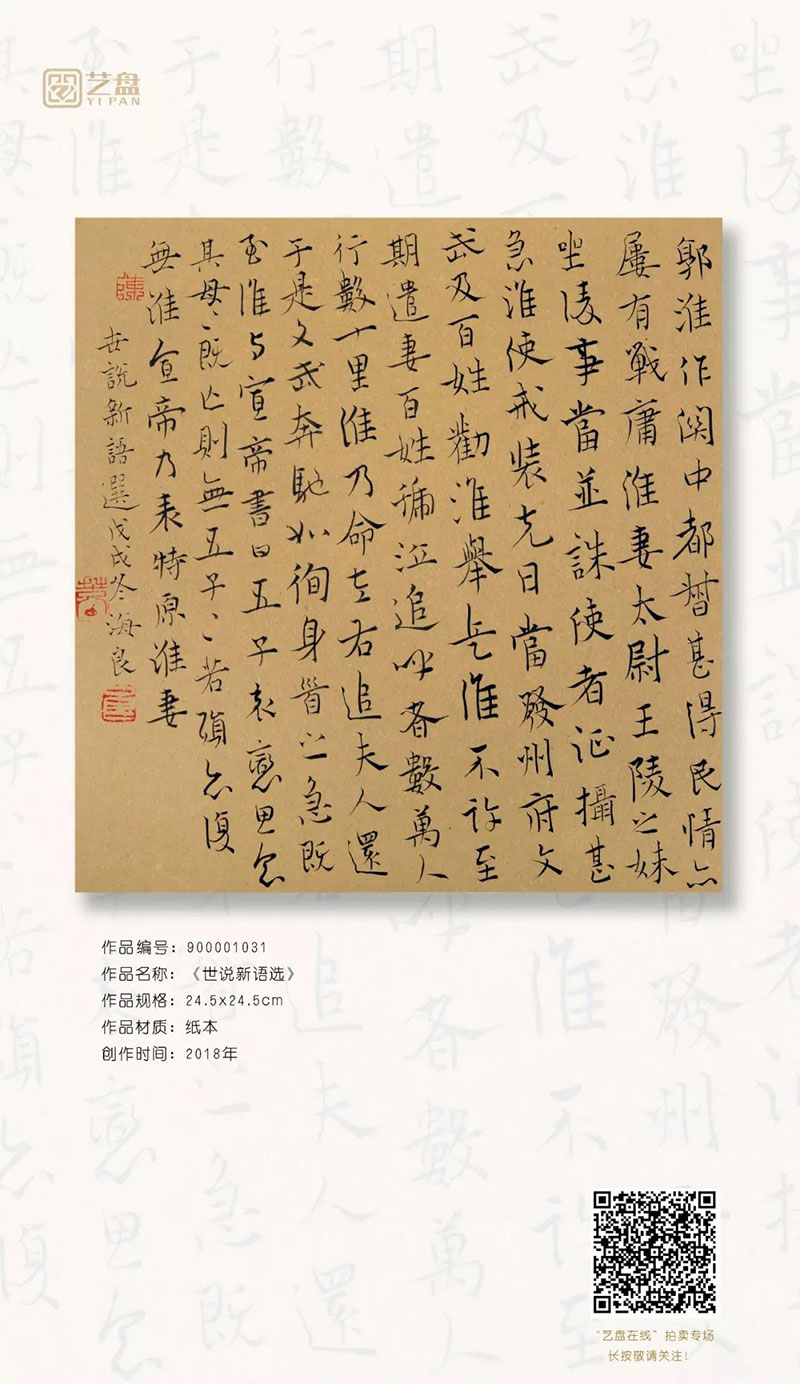 艺盘
YI PAN
郭淮作関中都督甚得民情亦
屢有戰庸淮妻太尉王陵之妹
坐淩事當並誅使者征攝甚
急淮使戒裝克日當發州府文
武及百姓勸淮舉兵淮不許至
期遣妻百姓號泣追呼者數萬人
行數十里淮乃命左右追夫人還
于是文武奔馳如徇身首之急既
至淮与宣帝書曰五子哀戀思念
其母〻既亡則無五子〻若殞亦復
無淮宣帝乃表特原淮妻
世說新語選戊戌冬海良
作品编号：900001031
作品名称：《世说新语选》
作品规格：24.5x24.5cm
作品材质：纸本
创作时间：2018年
“艺盘在线”拍卖专场
长按敬请关注！